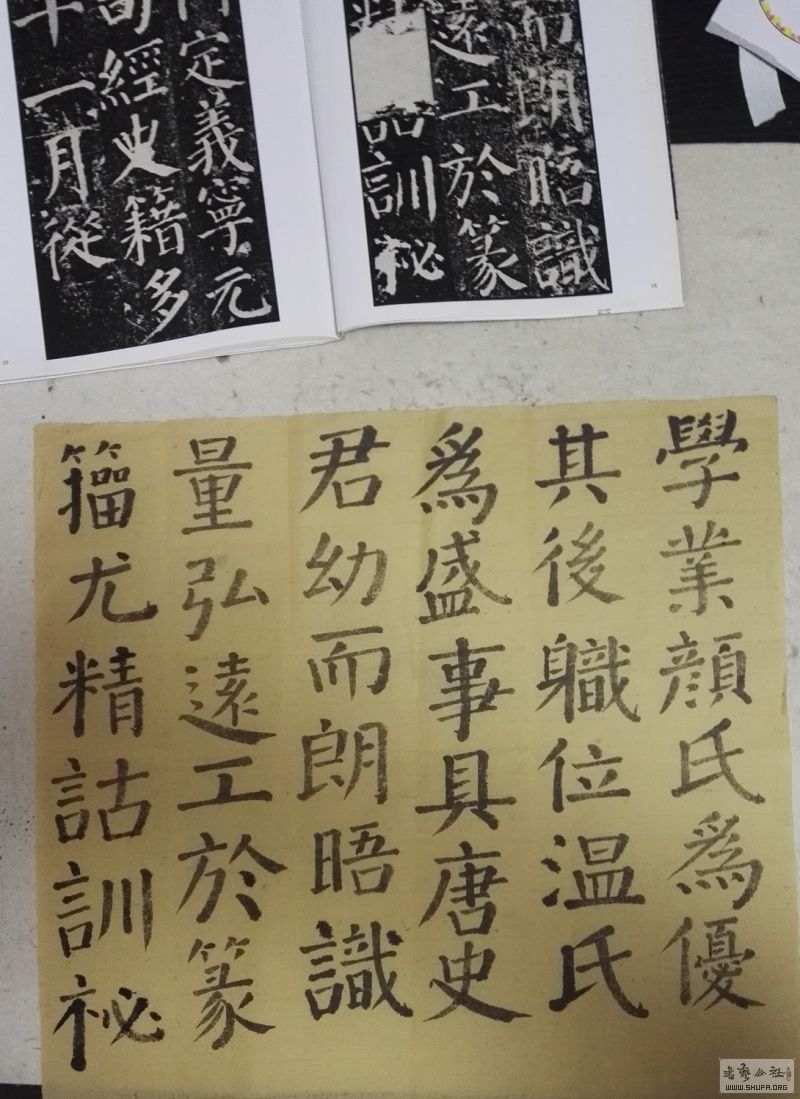 而朗晤識
遠工於篆
訓祕
18
定義寧元
經史籍多
一月從
20
學業顔氏爲優
其後職位温氏
爲盛事具唐史
君幼而朗晤識
量弘遠工於篆
籀尤精詁訓祕
WWW.SHUFA.ORG